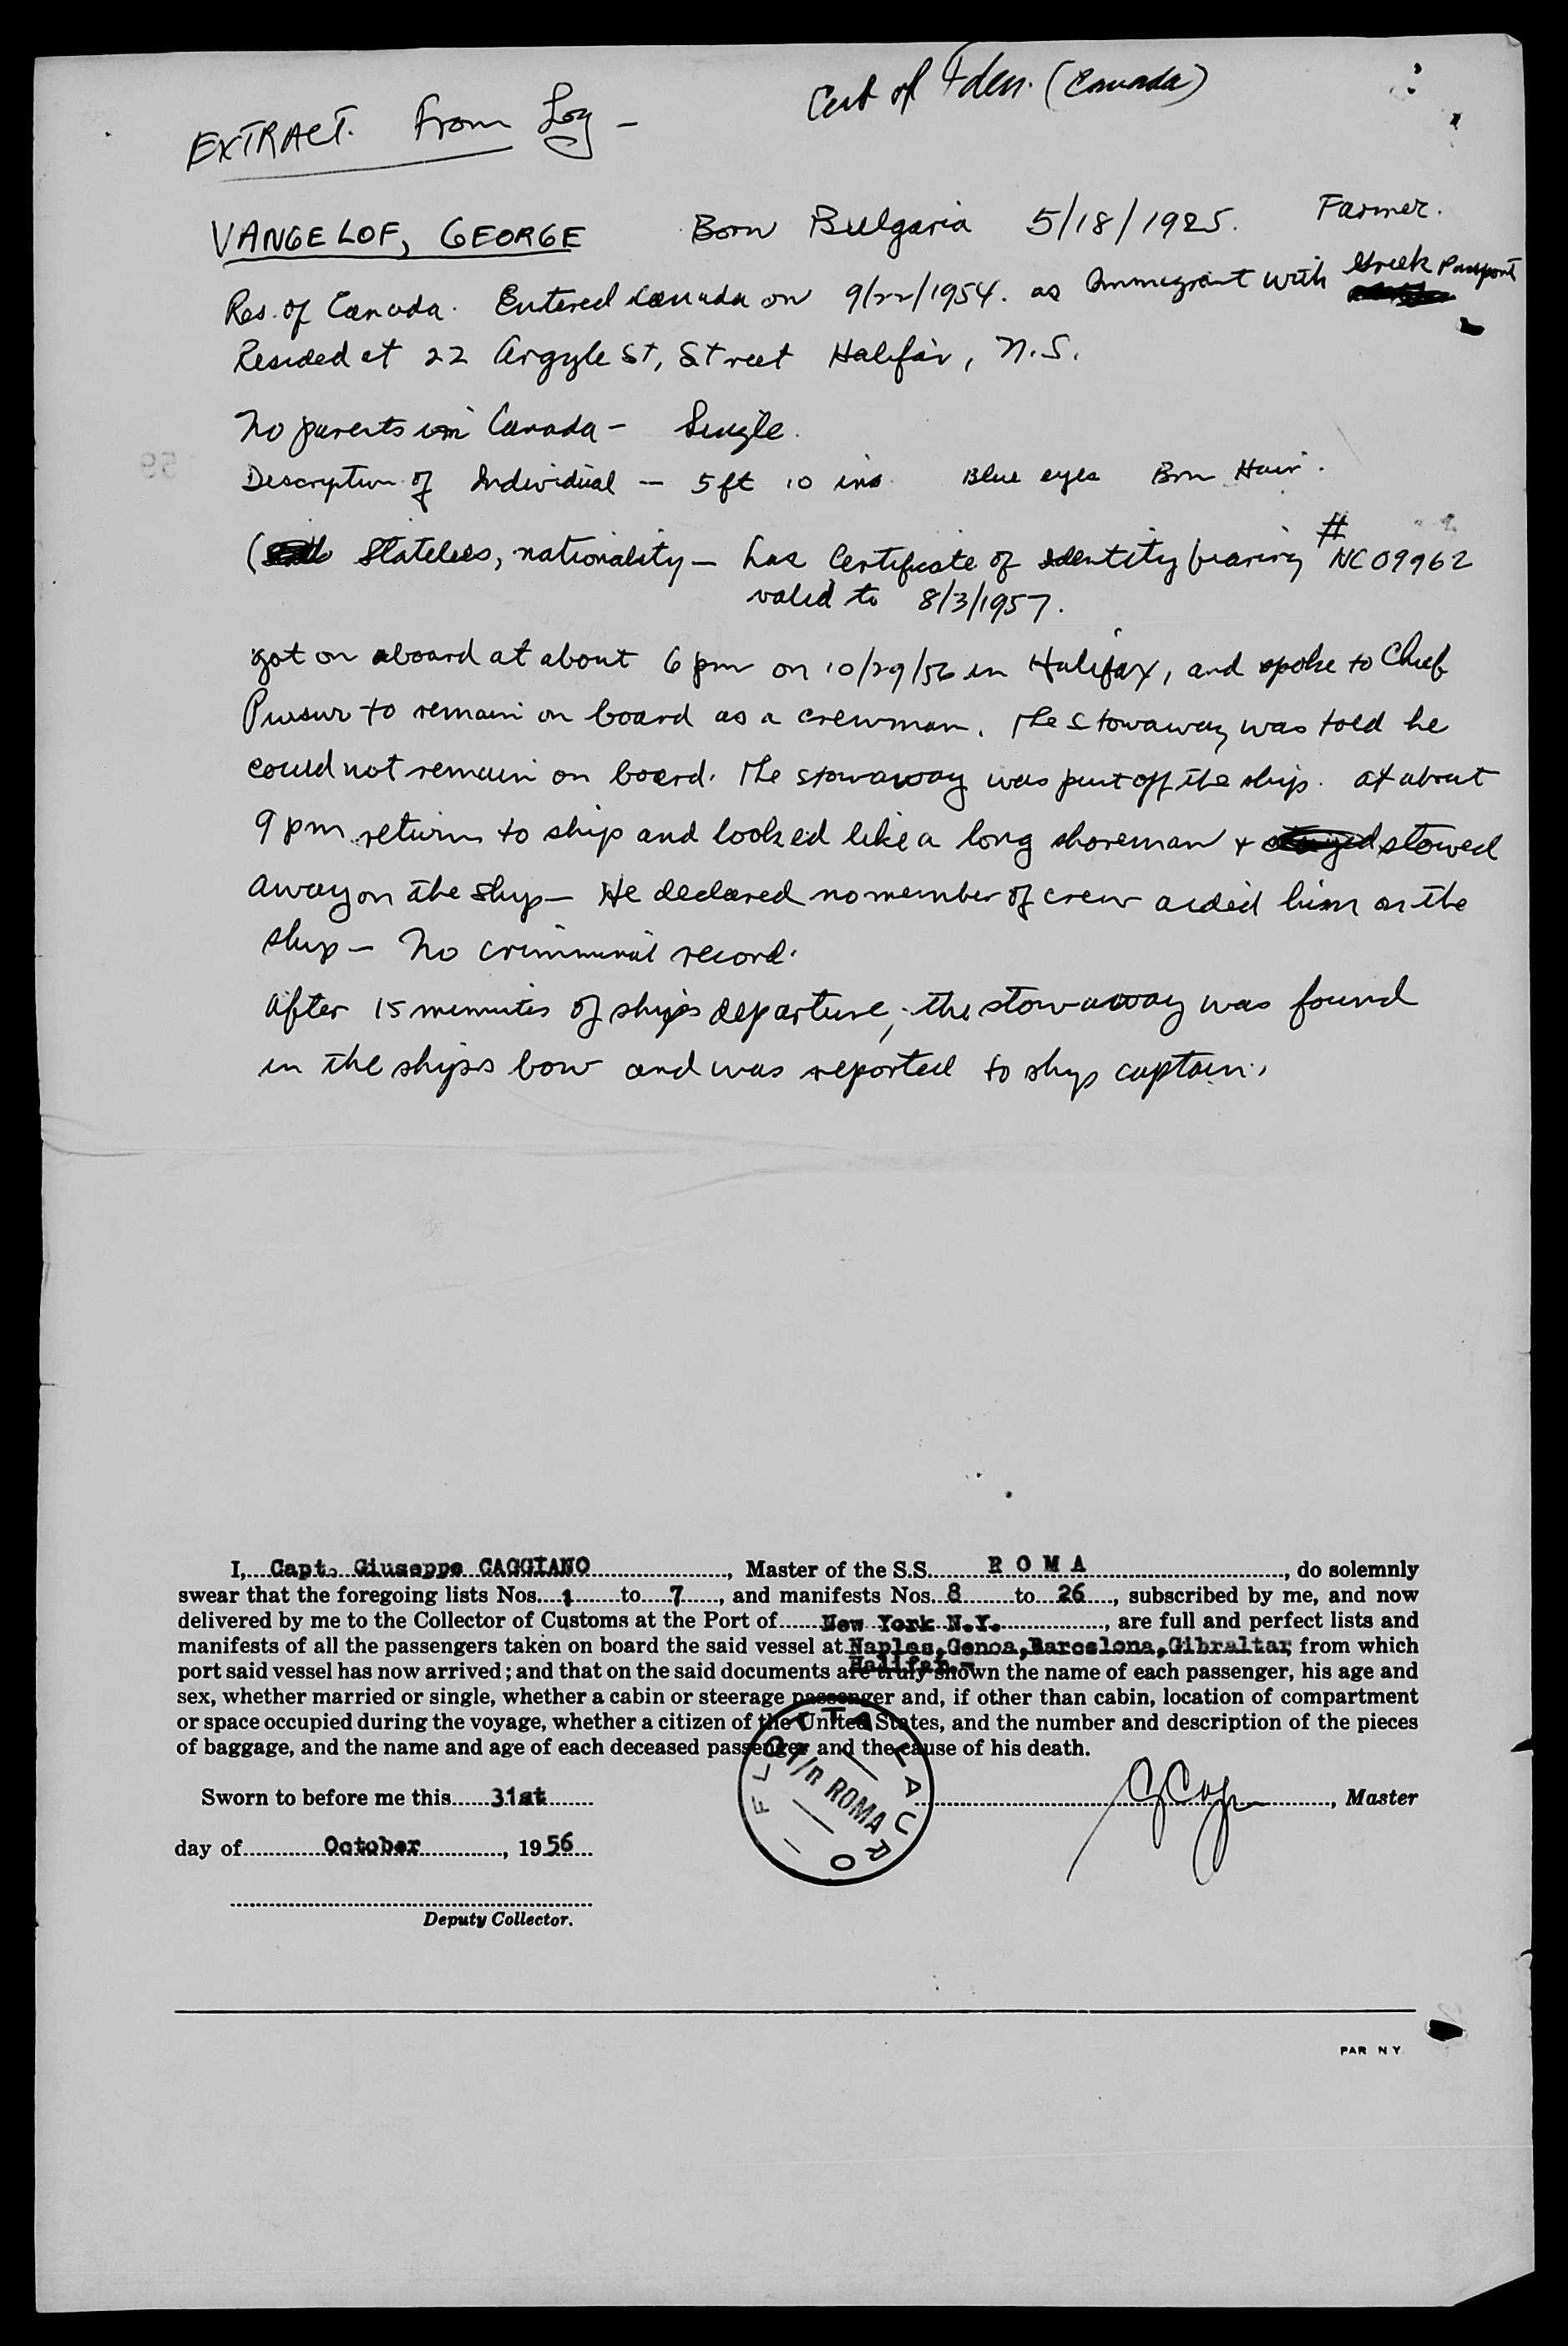 Cert of Iden. (Canada)
EXTRACT. From Log -
VANGELOF, GEORGE Born Bulgaria 5/18/1925. Farmer.
Res. of Canada. Entered Canada on 9/22/1954. as Immigrant with Greek Passport
Resided at 22 Argyle St, Street Halifax, N.S.
No parents in Canada - Single.
Description of Individual - 5 ft 10 ins. Blue eyes Brn Hair.
( Stateless, nationality - has Certificate of Identity bearing # NC 09962
valid to 8/3/1957.
got on aboard at about 6 pm on 10/29/56 in Halifax, and spoke to Chief
Pursur to remain on board as a crewman. The stowaway was told he
could not remain on board. The stowaway was put off the ship. at about
9 pm return to ship and looked like a long shoreman + stowed
away on the ship - He declared no member of crew aided him on the
ship - No criminal record.
After 15 minutes of ships departure, the stowaway was found
in the ships bow and was reported to ship captain.
I, Capt. Giuseppe CAGGIANO, Master of the S.S. ROMA, do solemnly
swear that the foregoing lists Nos. 1 to 7, and manifests Nos. 8 to 26, subscribed by me, and now
delivered by me to the Collector of Customs at the Port of New York N.Y., are full and perfect lists and
manifests of all the passengers taken on board the said vessel at Naples,Genoa,Barcelona,Gibraltar, from which
Halifax.-
port said vessel has now arrived; and that on the said documents are truly shown the name of each passenger, his age and
sex, whether married or single, whether a cabin or steerage passenger and, if other than cabin, location of compartment
or space occupied during the voyage, whether a citizen of the United States, and the number and description of the pieces
of baggage, and the name and age of each deceased passenger and the cause of his death.
FLOTTA LAURO
T/n ROMA
Sworn to before me this 31st
, Master
day of October, 1956
Deputy Collector.
PAR N Y